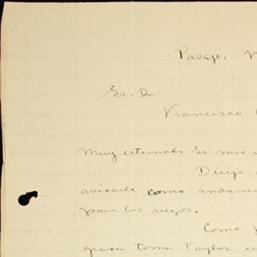 Pasaje,
Sr. Dr.
Francisco
Muy estimado Sr. mio
Dirijo
avisarle como andamos
para los riegos.
Como
Taylor